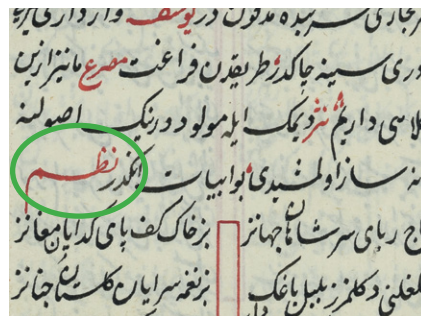 سرسبده مدفون در یوسف وار
دری سینه چاکدر طریقدن فراغت مصرع ما نیز ازین
لاسی داریم نثر دیمک ایله مولود و رنک اصولینه
ساز اولمشیدی بو ابیات انکدر نظم
ربای سر شاهان جهانز بز خاک کف پای کدایان مغانز
غلغلنی دکلمز بلبل باغک بز نغمه سرایان کلستان جنانز